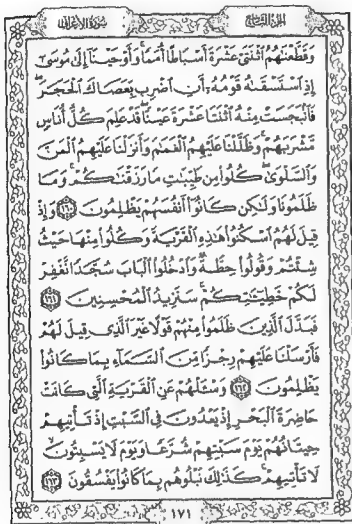 الجزء التاسع
سورة الأعراف
وَقَطَّعْنَٰهُمُ ٱثْنَتَىْ عَشْرَةَ أَسْبَاطًا أُمَمًا ۚ وَأَوْحَيْنَآ إِلَىٰ مُوسَىٰٓ
إِذِ ٱسْتَسْقَىٰهُ قَوْمُهُۥٓ أَنِ ٱضْرِب بِّعَصَاكَ ٱلْحَجَرَ ۖ
فَٱنۢبَجَسَتْ مِنْهُ ٱثْنَتَا عَشْرَةَ عَيْنًا ۖ قَدْ عَلِمَ كُلُّ أُنَاسٍ
مَّشْرَبَهُمْ ۚ وَظَلَّلْنَا عَلَيْهِمُ ٱلْغَمَٰمَ وَأَنزَلْنَا عَلَيْهِمُ ٱلْمَنَّ
وَٱلسَّلْوَىٰ ۖ كُلُوا۟ مِن طَيِّبَٰتِ مَا رَزَقْنَٰكُمْ ۚ وَمَا
ظَلَمُونَا وَلَٰكِن كَانُوٓا۟ أَنفُسَهُمْ يَظْلِمُونَ ﴿١٦٠﴾ وَإِذْ
قِيلَ لَهُمُ ٱسْكُنُوا۟ هَٰذِهِ ٱلْقَرْيَةَ وَكُلُوا۟ مِنْهَا حَيْثُ
شِئْتُمْ وَقُولُوا۟ حِطَّةٌ وَٱدْخُلُوا۟ ٱلْبَابَ سُجَّدًا نَّغْفِرْ
لَكُمْ خَطِيٓـَٰٔتِكُمْ ۚ سَنَزِيدُ ٱلْمُحْسِنِينَ ﴿١٦١﴾
فَبَدَّلَ ٱلَّذِينَ ظَلَمُوا۟ مِنْهُمْ قَوْلًا غَيْرَ ٱلَّذِى قِيلَ لَهُمْ
فَأَرْسَلْنَا عَلَيْهِمْ رِجْزًا مِّنَ ٱلسَّمَآءِ بِمَا كَانُوا۟
يَظْلِمُونَ ﴿١٦٢﴾ وَسْـَٔلْهُمْ عَنِ ٱلْقَرْيَةِ ٱلَّتِى كَانَتْ
حَاضِرَةَ ٱلْبَحْرِ إِذْ يَعْدُونَ فِى ٱلسَّبْتِ إِذْ تَأْتِيهِمْ
حِيتَانُهُمْ يَوْمَ سَبْتِهِمْ شُرَّعًا وَيَوْمَ لَا يَسْبِتُونَ ۙ
لَا تَأْتِيهِمْ ۚ كَذَٰلِكَ نَبْلُوهُم بِمَا كَانُوا۟ يَفْسُقُونَ ﴿١٦٣﴾
١٧١